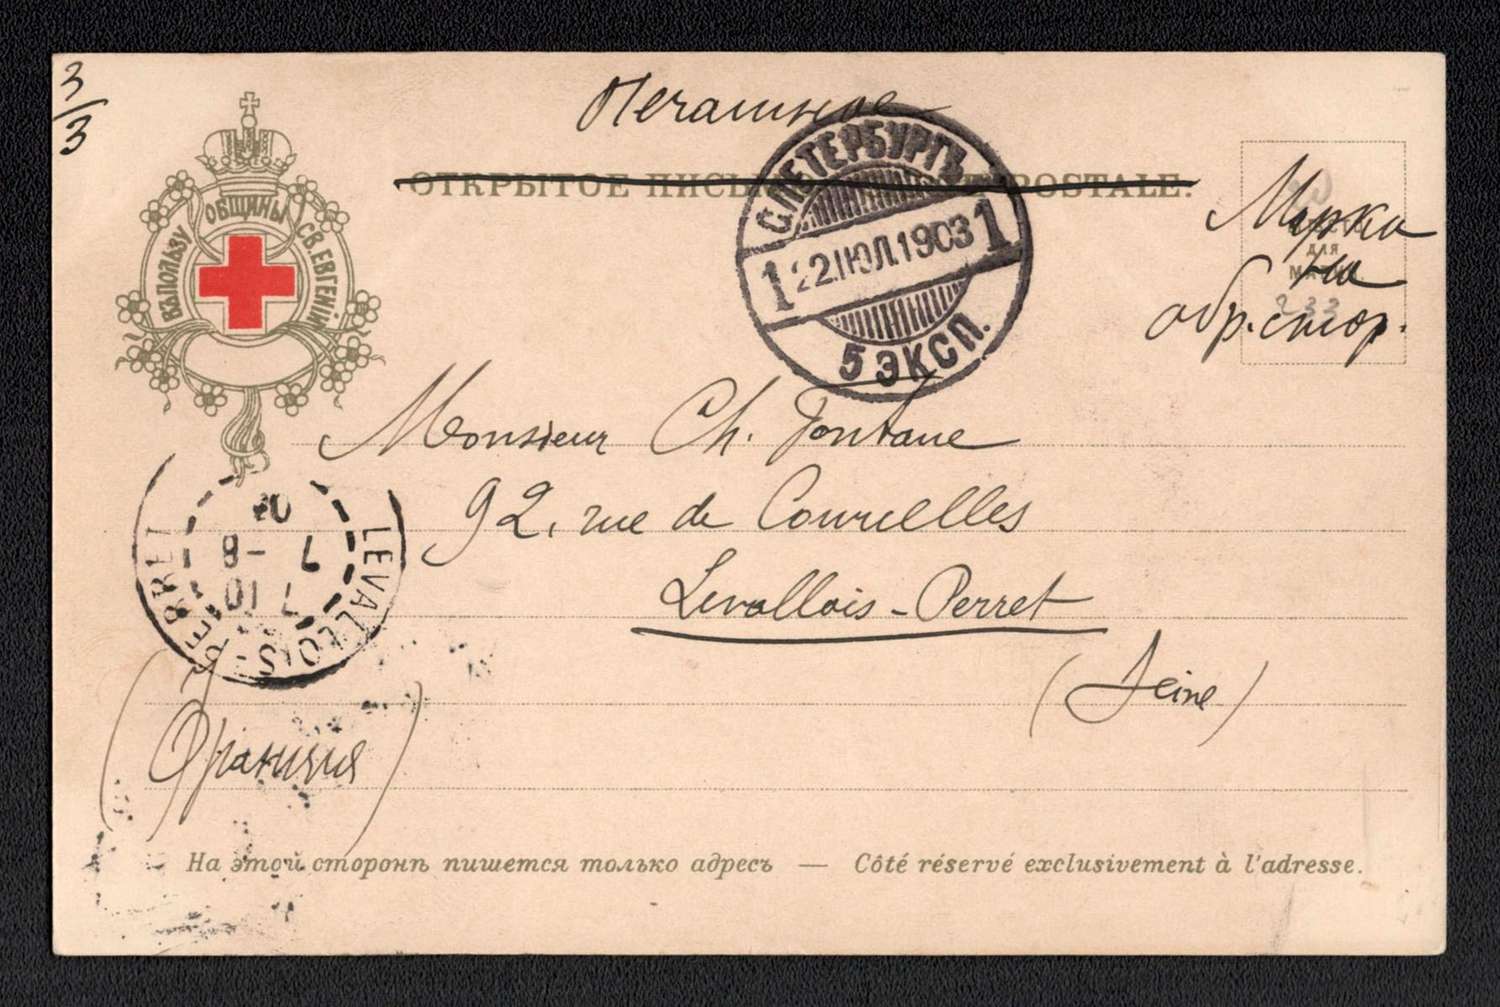 3/3
Печатное
ОТКРЫТОЕ ПИСЬ
POSTALE.
ВЪ ПОЛЬЗУ ОБЩИНЫ СВ. ЕВГЕНІИ
С.ПЕТЕРБУРГЪ
1 22.ІЮЛ.1903 1
5 ЭКСП.
Марка
на
обр. стор.
ДЛЯ
233
Monsieur Ch. Fontane
92, rue de Courcelles
Levallois-Perret
(Seine)
LEVALLOIS-PERRET
7 -8
7 10
(Франція)
На этой сторонѣ пишется только адресъ — Côté réservé exclusivement à l'adresse.